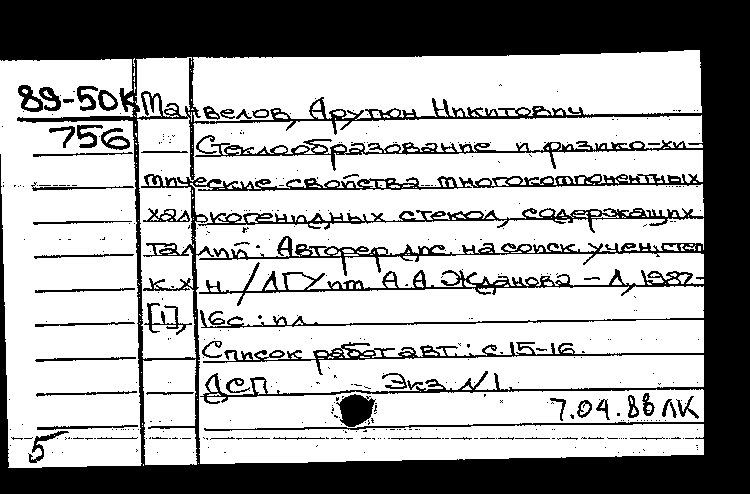 89-50К Манвелов, Арутюн Никитович
756 Стеклообразование и физико-хи-
мические свойства многокомпонентных
халькогенидных стекол, содержащих
таллий: Автореф. дис. на соиск. учен. степ
к. х. н. / ЛГУ им. А.А. Жданова – Л, 1987-
[1], 16с. : ил.
Список работ авт.: с. 15-16.
ДСП. Экз. N1.
7.04.88 ЛК
5